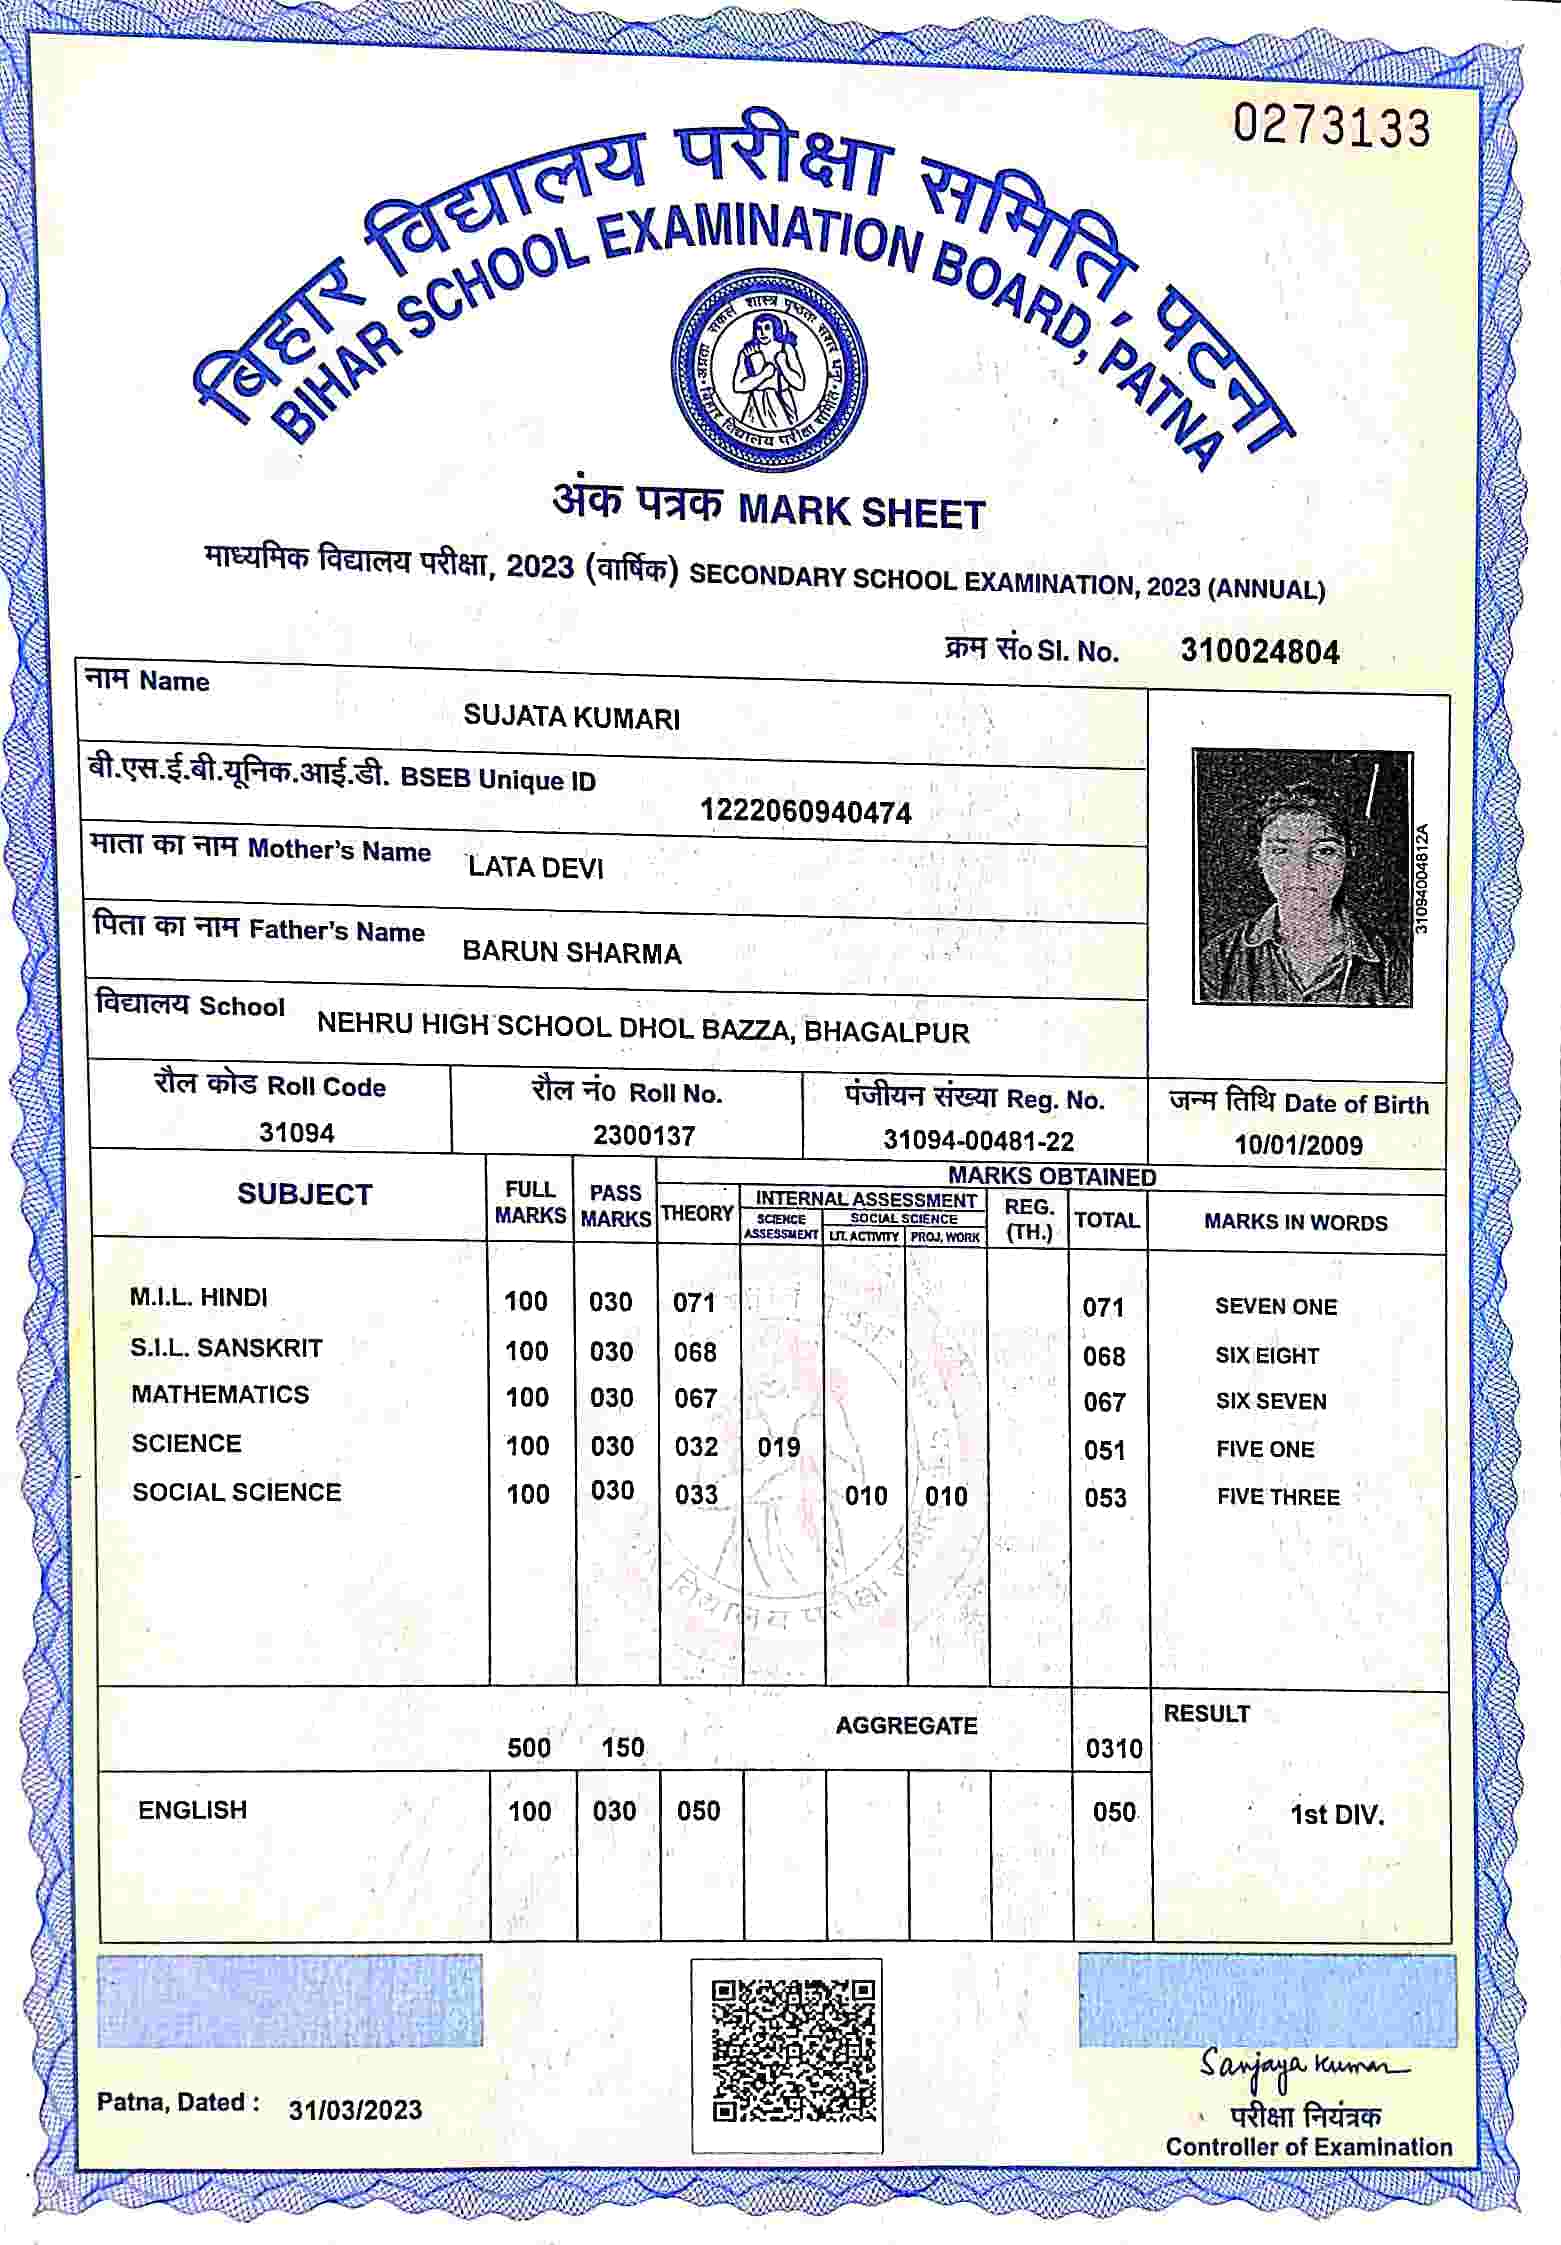 0273133
बिहार विद्यालय परीक्षा समिति, पटना
BIHAR SCHOOL EXAMINATION BOARD, PATNA
अंक पत्रक MARK SHEET
माध्यमिक विद्यालय परीक्षा, 2023 (वार्षिक) SECONDARY SCHOOL EXAMINATION, 2023 (ANNUAL)
क्रम सं० Sl. No. 310024804
नाम Name SUJATA KUMARI
बी.एस.ई.बी.यूनिक.आई.डी. BSEB Unique ID 1222060940474
माता का नाम Mother's Name LATA DEVI
पिता का नाम Father's Name BARUN SHARMA
विद्यालय School NEHRU HIGH SCHOOL DHOL BAZZA, BHAGALPUR
31094004812A
रौल कोड Roll Code रौल नं० Roll No. पंजीयन संख्या Reg. No. जन्म तिथि Date of Birth
31094 2300137 31094-00481-22 10/01/2009
MARKS OBTAINED
SUBJECT FULL MARKS PASS MARKS THEORY INTERNAL ASSESSMENT REG. (TH.) TOTAL MARKS IN WORDS
SCIENCE ASSESSMENT SOCIAL SCIENCE
LIT. ACTIVITY PROJ. WORK
M.I.L. HINDI 100 030 071 071 SEVEN ONE
S.I.L. SANSKRIT 100 030 068 068 SIX EIGHT
MATHEMATICS 100 030 067 067 SIX SEVEN
SCIENCE 100 030 032 019 051 FIVE ONE
SOCIAL SCIENCE 100 030 033 010 010 053 FIVE THREE
500 150 AGGREGATE 0310 RESULT
ENGLISH 100 030 050 050 1st DIV.
Sanjaya Kumar
Patna, Dated : 31/03/2023
परीक्षा नियंत्रक
Controller of Examination